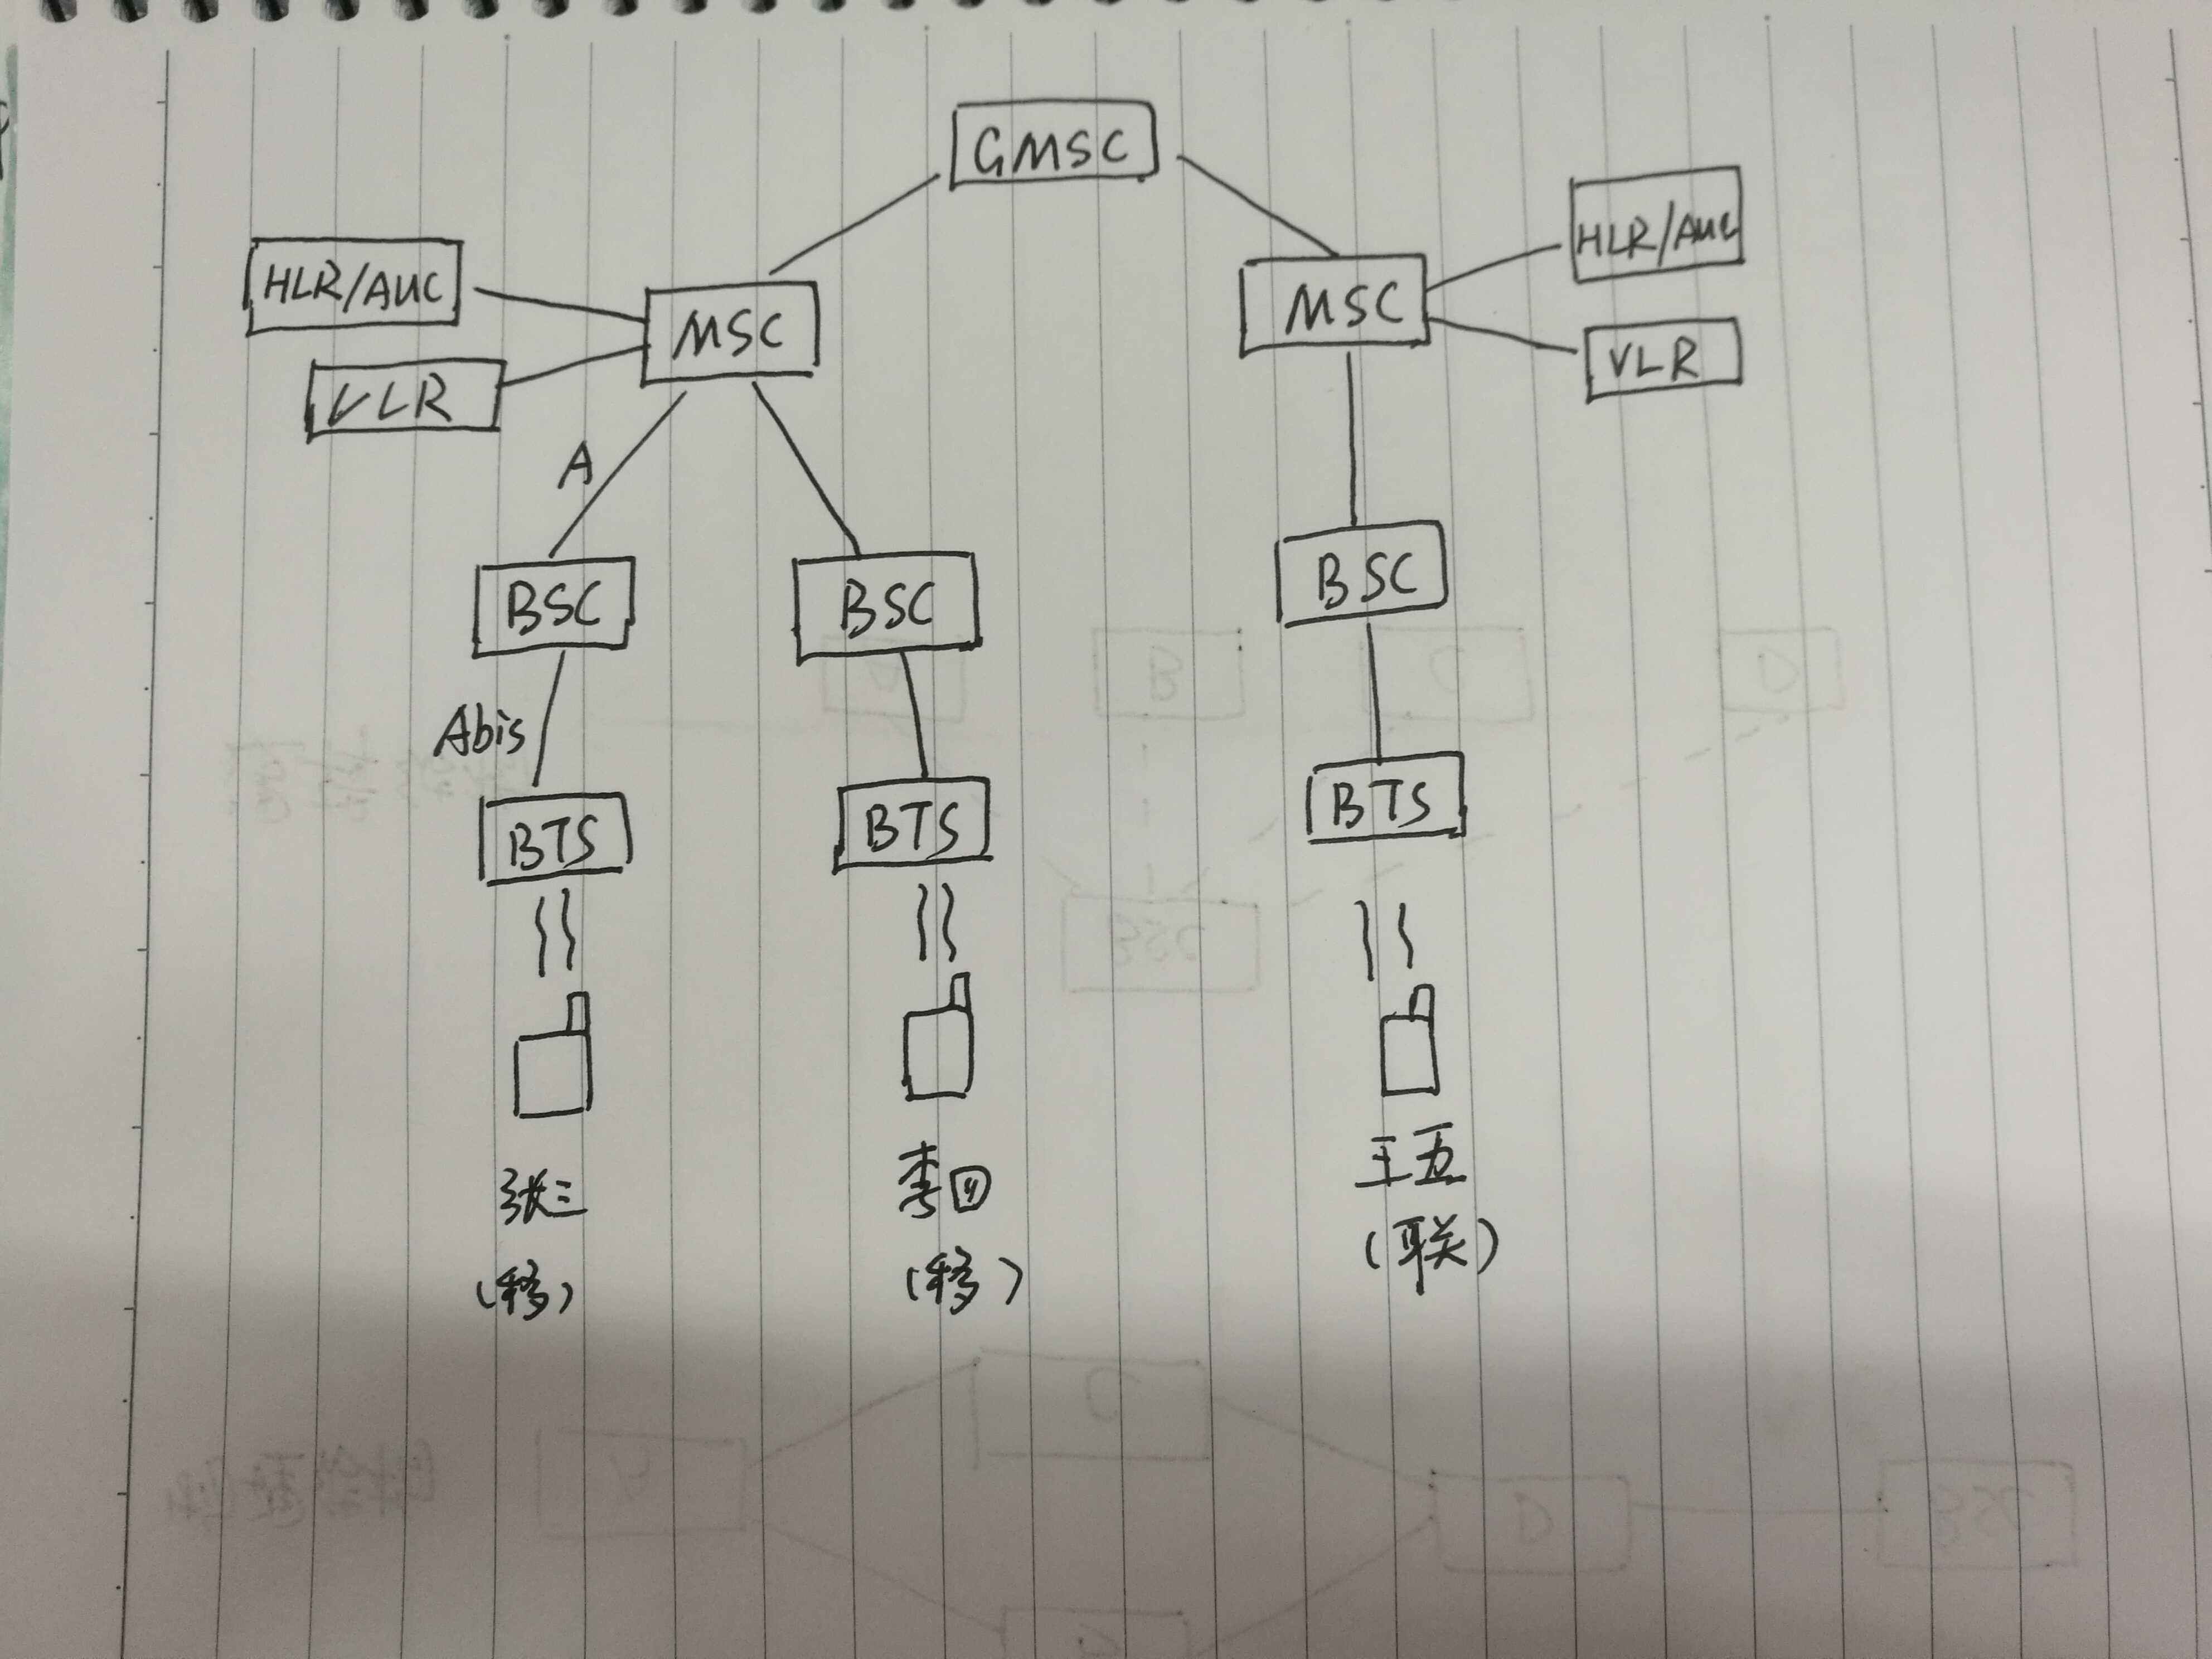 GMSC
HLR/AUC
MSC
MSC
HLR/AUC
VLR
VLR
A
BSC
BSC
BSC
Abis
BTS
BTS
BTS
张三
李四
王五
(移)
(移)
(联)